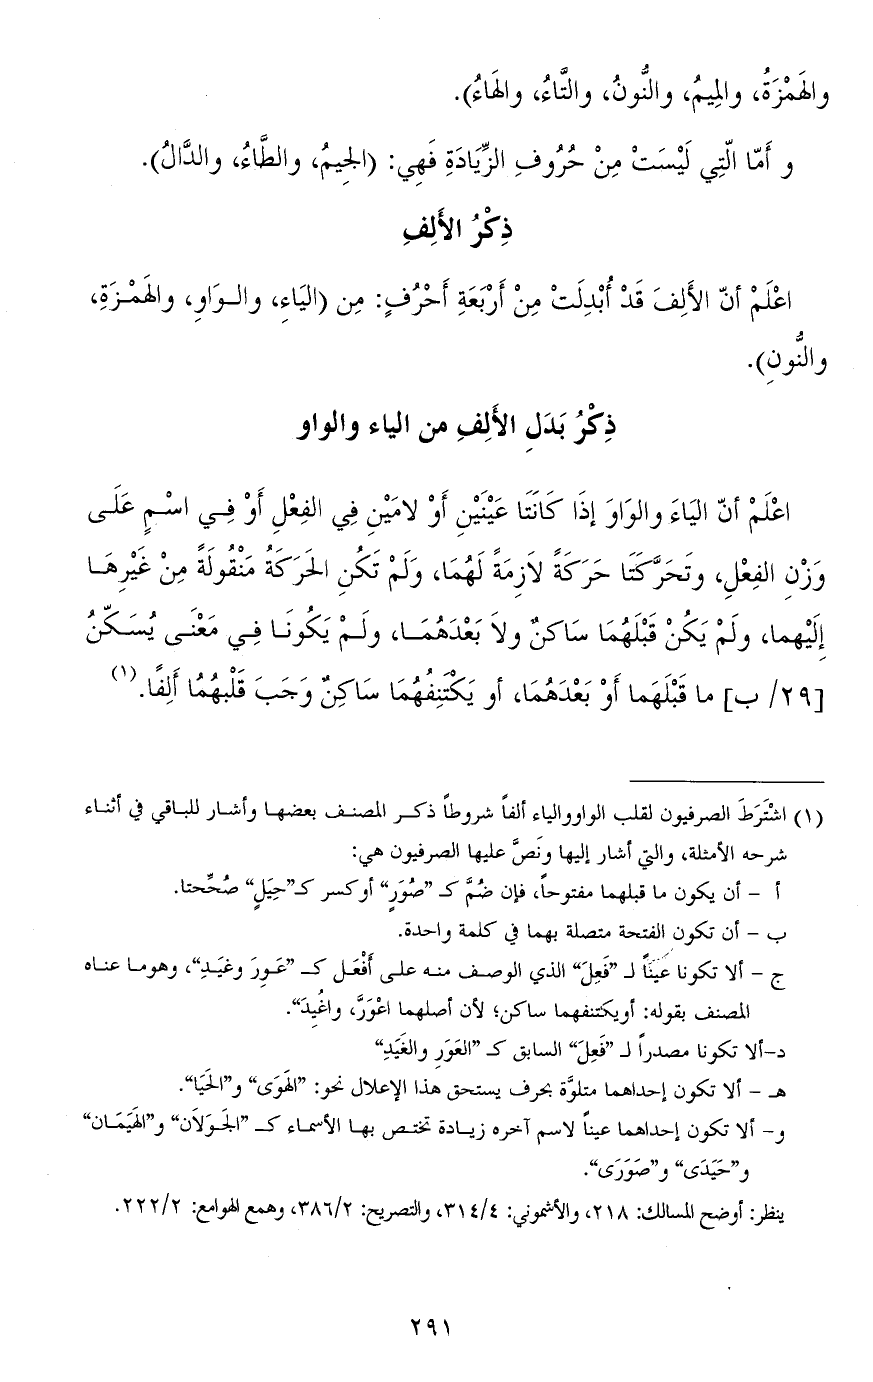 والهَمْزَةُ، والمِيمُ، والنُّونُ، والتَّاءُ، والهَاءُ).
و أَمّا الّتِي لَيْسَتْ مِنْ حُرُوفِ الزِّيَادَةِ فَهِي: (الجِيمُ، والطَّاءُ، والدَّالُ).
ذِكْرُ الأَلِفِ
اعْلَمْ أنّ الأَلِفَ قَدْ أُبْدِلَتْ مِنْ أَرْبَعَةِ أَحْرُفٍ: مِن (اليَاءِ، والـوَاوِ، والهَمْـزَةِ،
والنُّونِ).
ذِكْرُ بَدَلِ الأَلِفِ من الياء والواو
اعْلَمْ أنّ اليَاءَ والوَاوَ إذَا كَانَتَا عَيْنَيْنِ أَوْ لامَيْنِ فِي الفِعْلِ أَوْ فِـي اسْـمٍ عَلَـى
وَزْنِ الفِعْلِ، وتَحَرَّكَتَا حَرَكَةً لاَزِمَةً لَهُمَا، ولَمْ تَكُنِ الحَرَكَةُ مَنْقُولَةً مِنْ غَيْرِهَـا
إلَيْهِما، ولَمْ يَكُنْ قَبْلَهُمَا سَاكنٌ ولاَ بَعْدَهُمَـا، ولَـمْ يَكُونَـا فِـي مَعْنَـى يُسَـكّنُ
[٢٩/ ب] ما قَبْلَهَما أَوْ بَعْدَهُمَا، أو يَكْتَنِفُهُمَا سَاكِنٌ وَجَبَ قَلْبُهُمُا أَلِفًا.(١)
(١) اشْتَرَطَ الصرفيون لقلب الواووالياء ألفاً شروطاً ذكـر المصنـف بعضهـا وأشـار للبـاقي في أثنـاء
شرحه الأمثلة، والتي أشار إليها ونَصَّ عليها الصرفيون هي:
أ – أن يكون ما قبلهما مفتوحاً، فإن ضُمَّ كـ ”صُوَرٍ“ أوكسر كـ”حِيَلٍ“ صُحِّحتا.
ب – أن تكون الفتحة متصلة بهما في كلمة واحدة.
ج – ألا تكونا عيناً لـ ”فَعِلَ“ الذي الوصـف منـه علـى أَفْعَـل كـ ”عَـورَ وغَيَـدِ“، وهومـا عنـاه
المصنف بقوله: أويكتنفهما ساكن؛ لأن أصلهما اعْوَرَّ، واغْيدَ“.
د–ألا تكونا مصدراً لـ ”فَعِلَ“ السابق كـ ”العَوَر والغَيَدِ“
هـ – ألا تكون إحداهما متلوَّة بحرف يستحق هذا الإعلال نحو: ”الهَوَى“ و”الحَيَا“.
و– ألا تكون إحداهما عيناً لاسم آخره زيـادة تختـص بهـا الأسمـاء كـ ”الجَـوَلاَن“ و”الهَيَمَـان“
و”حَيَدَى“ و”صَوَرَى“.
ينظر: أوضح المسالك: ٢١٨، والأشموني: ٣١٤/٤، والتصريح: ٣٨٦/٢، وهمع الهوامع: ٢٢٢/٢.
٢٩١